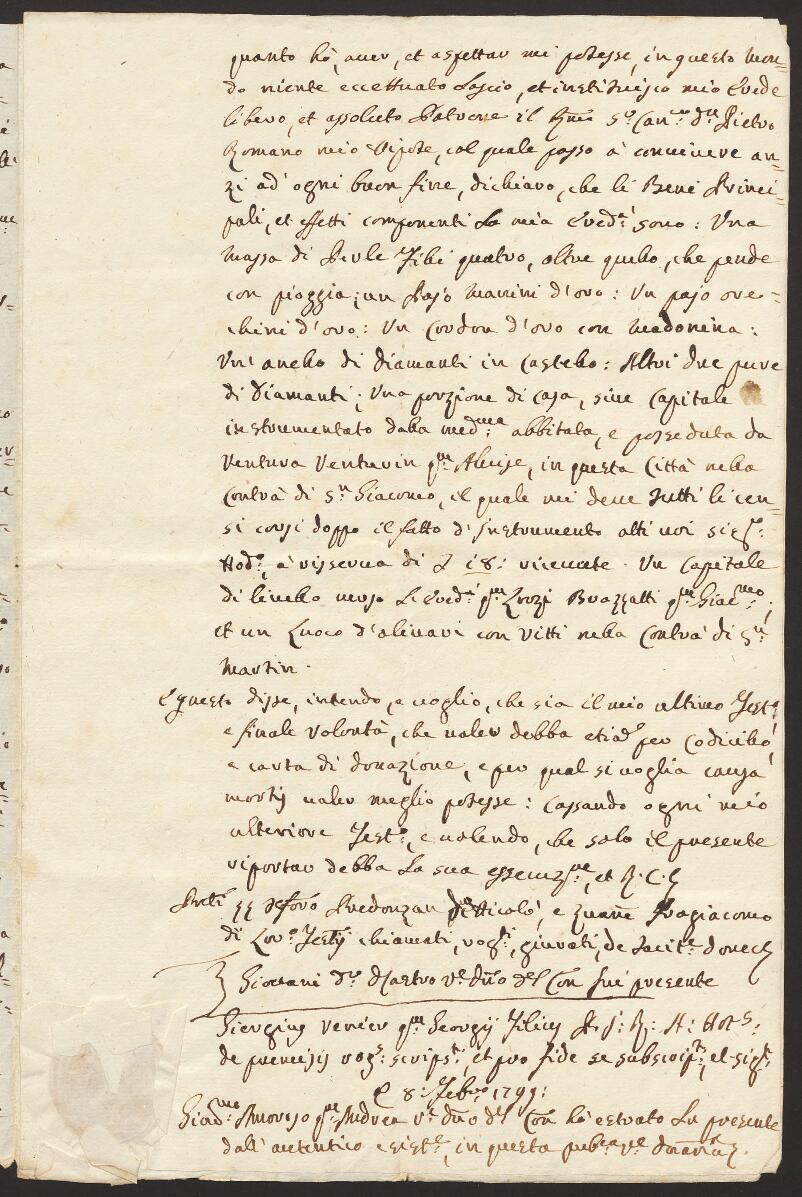 quanto hò, aver, et aspettar mi potesse, in questo mon-
do niente eccettuato Lascio, et instituisco mio Erede
libero, et assoluto Patrone il Rmo Sr Canco Dn Pietro
Romano mio Nipote, col quale passo à convivere an-
zi ad' ogni buon fine, dichiaro, che li Beni Princi-
pali, et effetti componenti La mia Ereda sono: Una
massa di Perle Fili quatro, oltre quello, che pende
con pioggia; un Pajo Manini d'oro: Un pajo ore-
chini d'oro: Un Cordon d'oro con Madonina:
Un' anello di Diamanti in Castello: Altri due pure
di Diamanti; Una porzione di casa, sive Capitale
instrumentato dalla medma abbitata, e posseduta da
Ventura Venturin qm Alvise, in questa Città nella
Contrà di Sn Giacomo, il quale mi deve tutti li cen-
si corsi doppo il fatto d'Instrumento atti noi
Nodo, à risserva di L 18: riceute. Un Capitale
di livello verso Li Eredi qm Lrozi Brazzatti qm Giacmo;
et un Luoco d'alivari con vitti nella Contrà di Sn
Martin.
E questo disse, intendo, e voglio, che sia il mio ultimo Testo
e finale volontà, che valer debba etiado per Codicillo,
e carta di donazione, e per qual si voglia causa
mortis valer meglio potesse: Cassando ogni mio
ulteriore Testo, e volendo, che solo il presente
riportar debba La sua essecuzne, et R. C. S
Pred. Nicolò, e Zuane Fragiacomo
di Lor. Testij chiamati, vogti, giurati, de tacite donec
Giovani Dr Castro Vo Dno del Con fui presente
Giorgius Venier qm Georgij Filius P. J: V: A: Nots:
de premissis rogs: scripst, et pro fide se subscripst, et sigt
8: Febro 1799:
Giacmo Amoroso qm Andrea Vo Dno del Con hò estrato La presente
dall' autentico esiste, in questa pubca Va